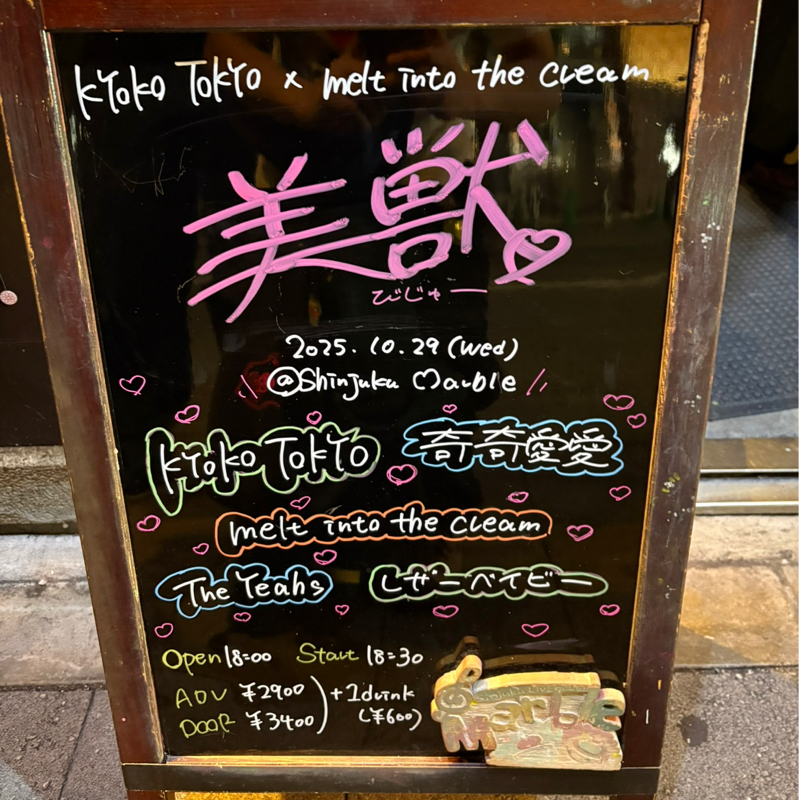 KYOKO TOKYO × melt into the cream
美獣
びじゅー
2025.10.29(Wed)
@Shinjuku Marble
KYOKO TOKYO 奇奇愛愛
melt into the cream
The Yeahs レザーベイビー
Open 18:00 Start 18:30
ADV ¥2900
DOOR ¥3400
+1drink
(¥600)
Marble